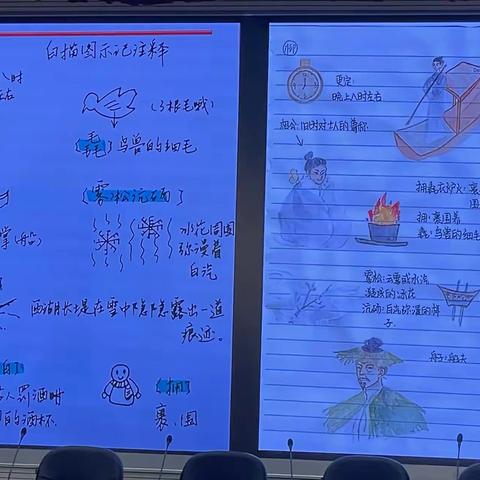 白描图示记注释
八时
左右
(3根毛哦)
[毳] 鸟兽的细毛
[雾凇沆砀]
水花周围
弥漫着
白汽
掌(船)
西湖长堤在雪中隐隐露出一道
痕迹。
白]
人罚酒时
的酒杯.
[拥]
裹、围
更定:
晚上八时左右
相公:旧时对士人的尊称
拥毳衣炉火:裹
围
拥:裹围着
毳:鸟兽的细毛
雾凇:云雾或水汽
凝成的冰花
沆砀:白气弥漫的样
子.
舟子:船夫